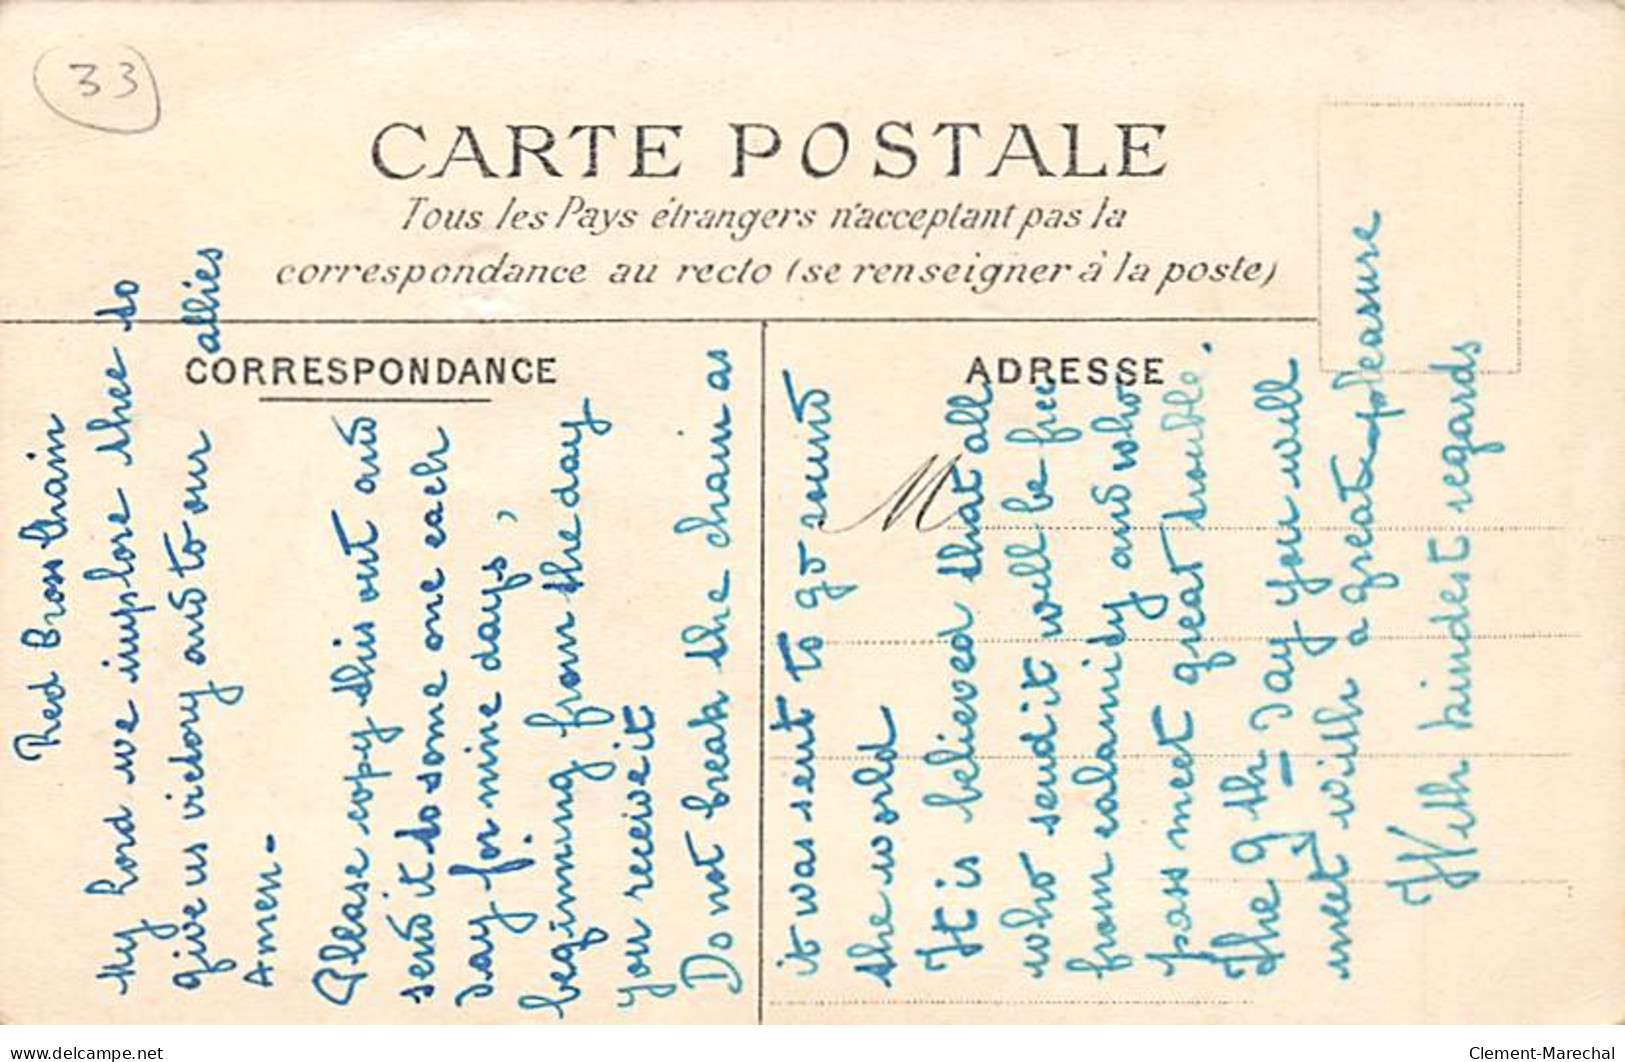 33
CARTE POSTALE
Tous les Pays étrangers n'acceptant pas la
correspondance au recto (se renseigner à la poste)
CORRESPONDANCE
ADRESSE
M
Red Cross Chain
My Lord we implore thee to
give us victory and to our allies
Amen-
Please copy this out and
send it to some one each
day for nine days,
beginning from the day
you receive it
Do not break the chain as
it was sent to go round
the world
It is believed that all
who send it will be free
from calamidy and who
pass meet great trouble.
The 9th day you will
meet with a great pleasure
With kindest regards
delcampe.net
Clement-Marechal